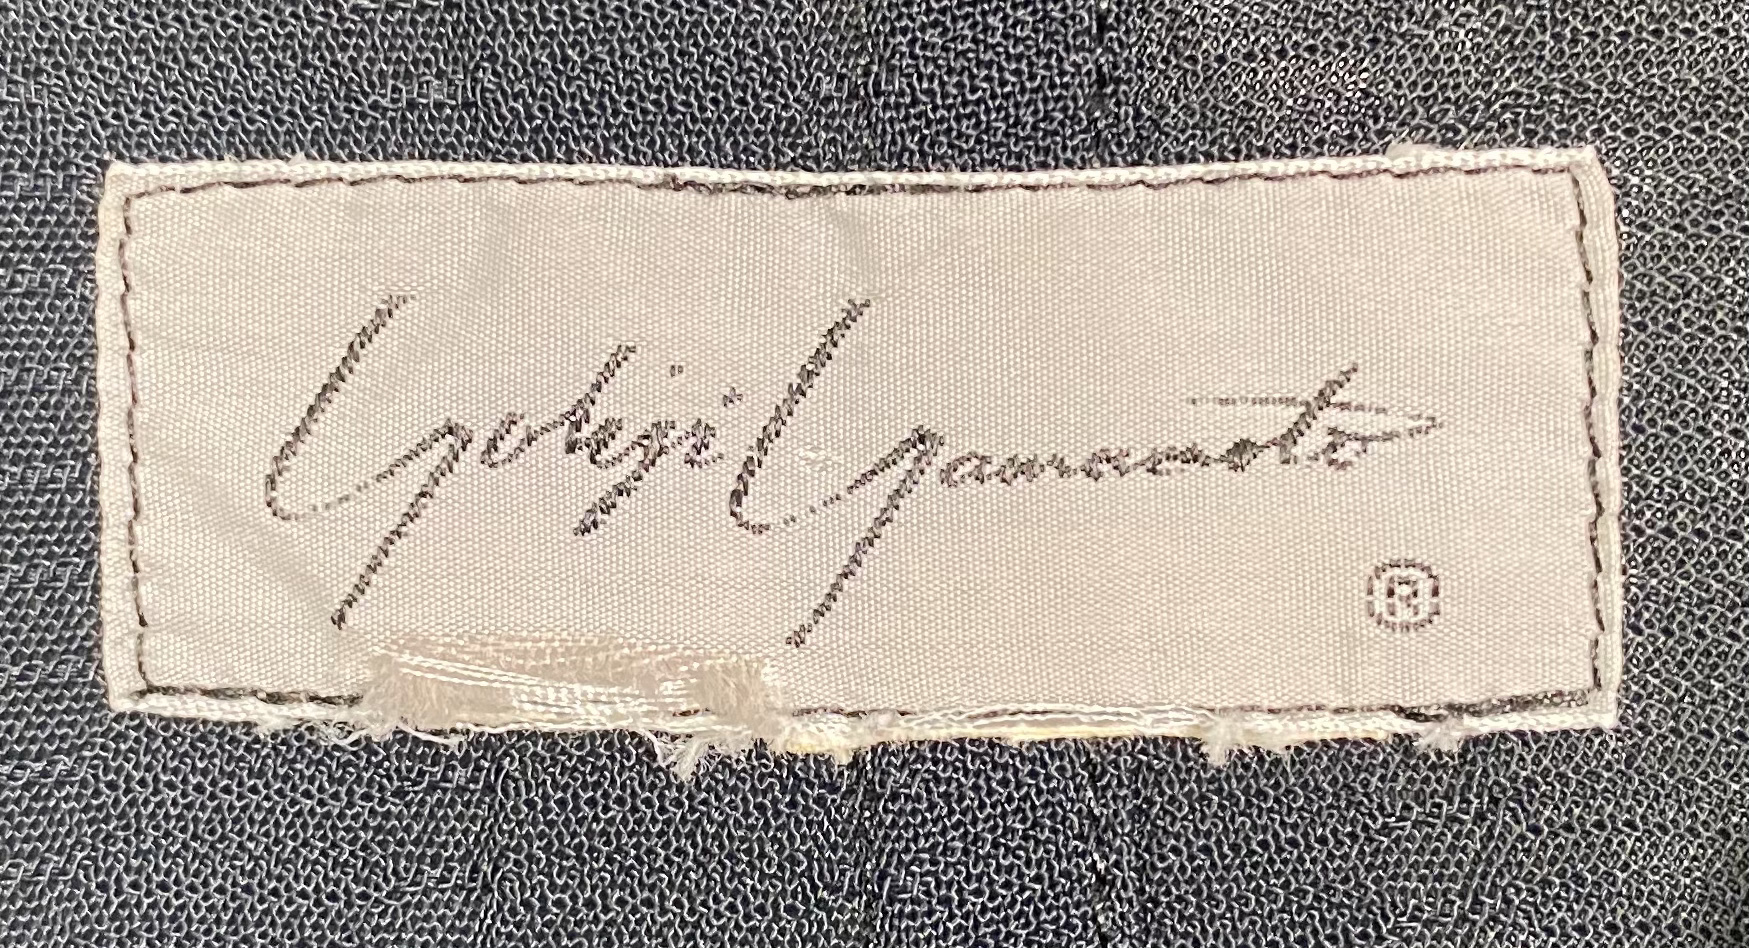 Yohji Yamamoto
®